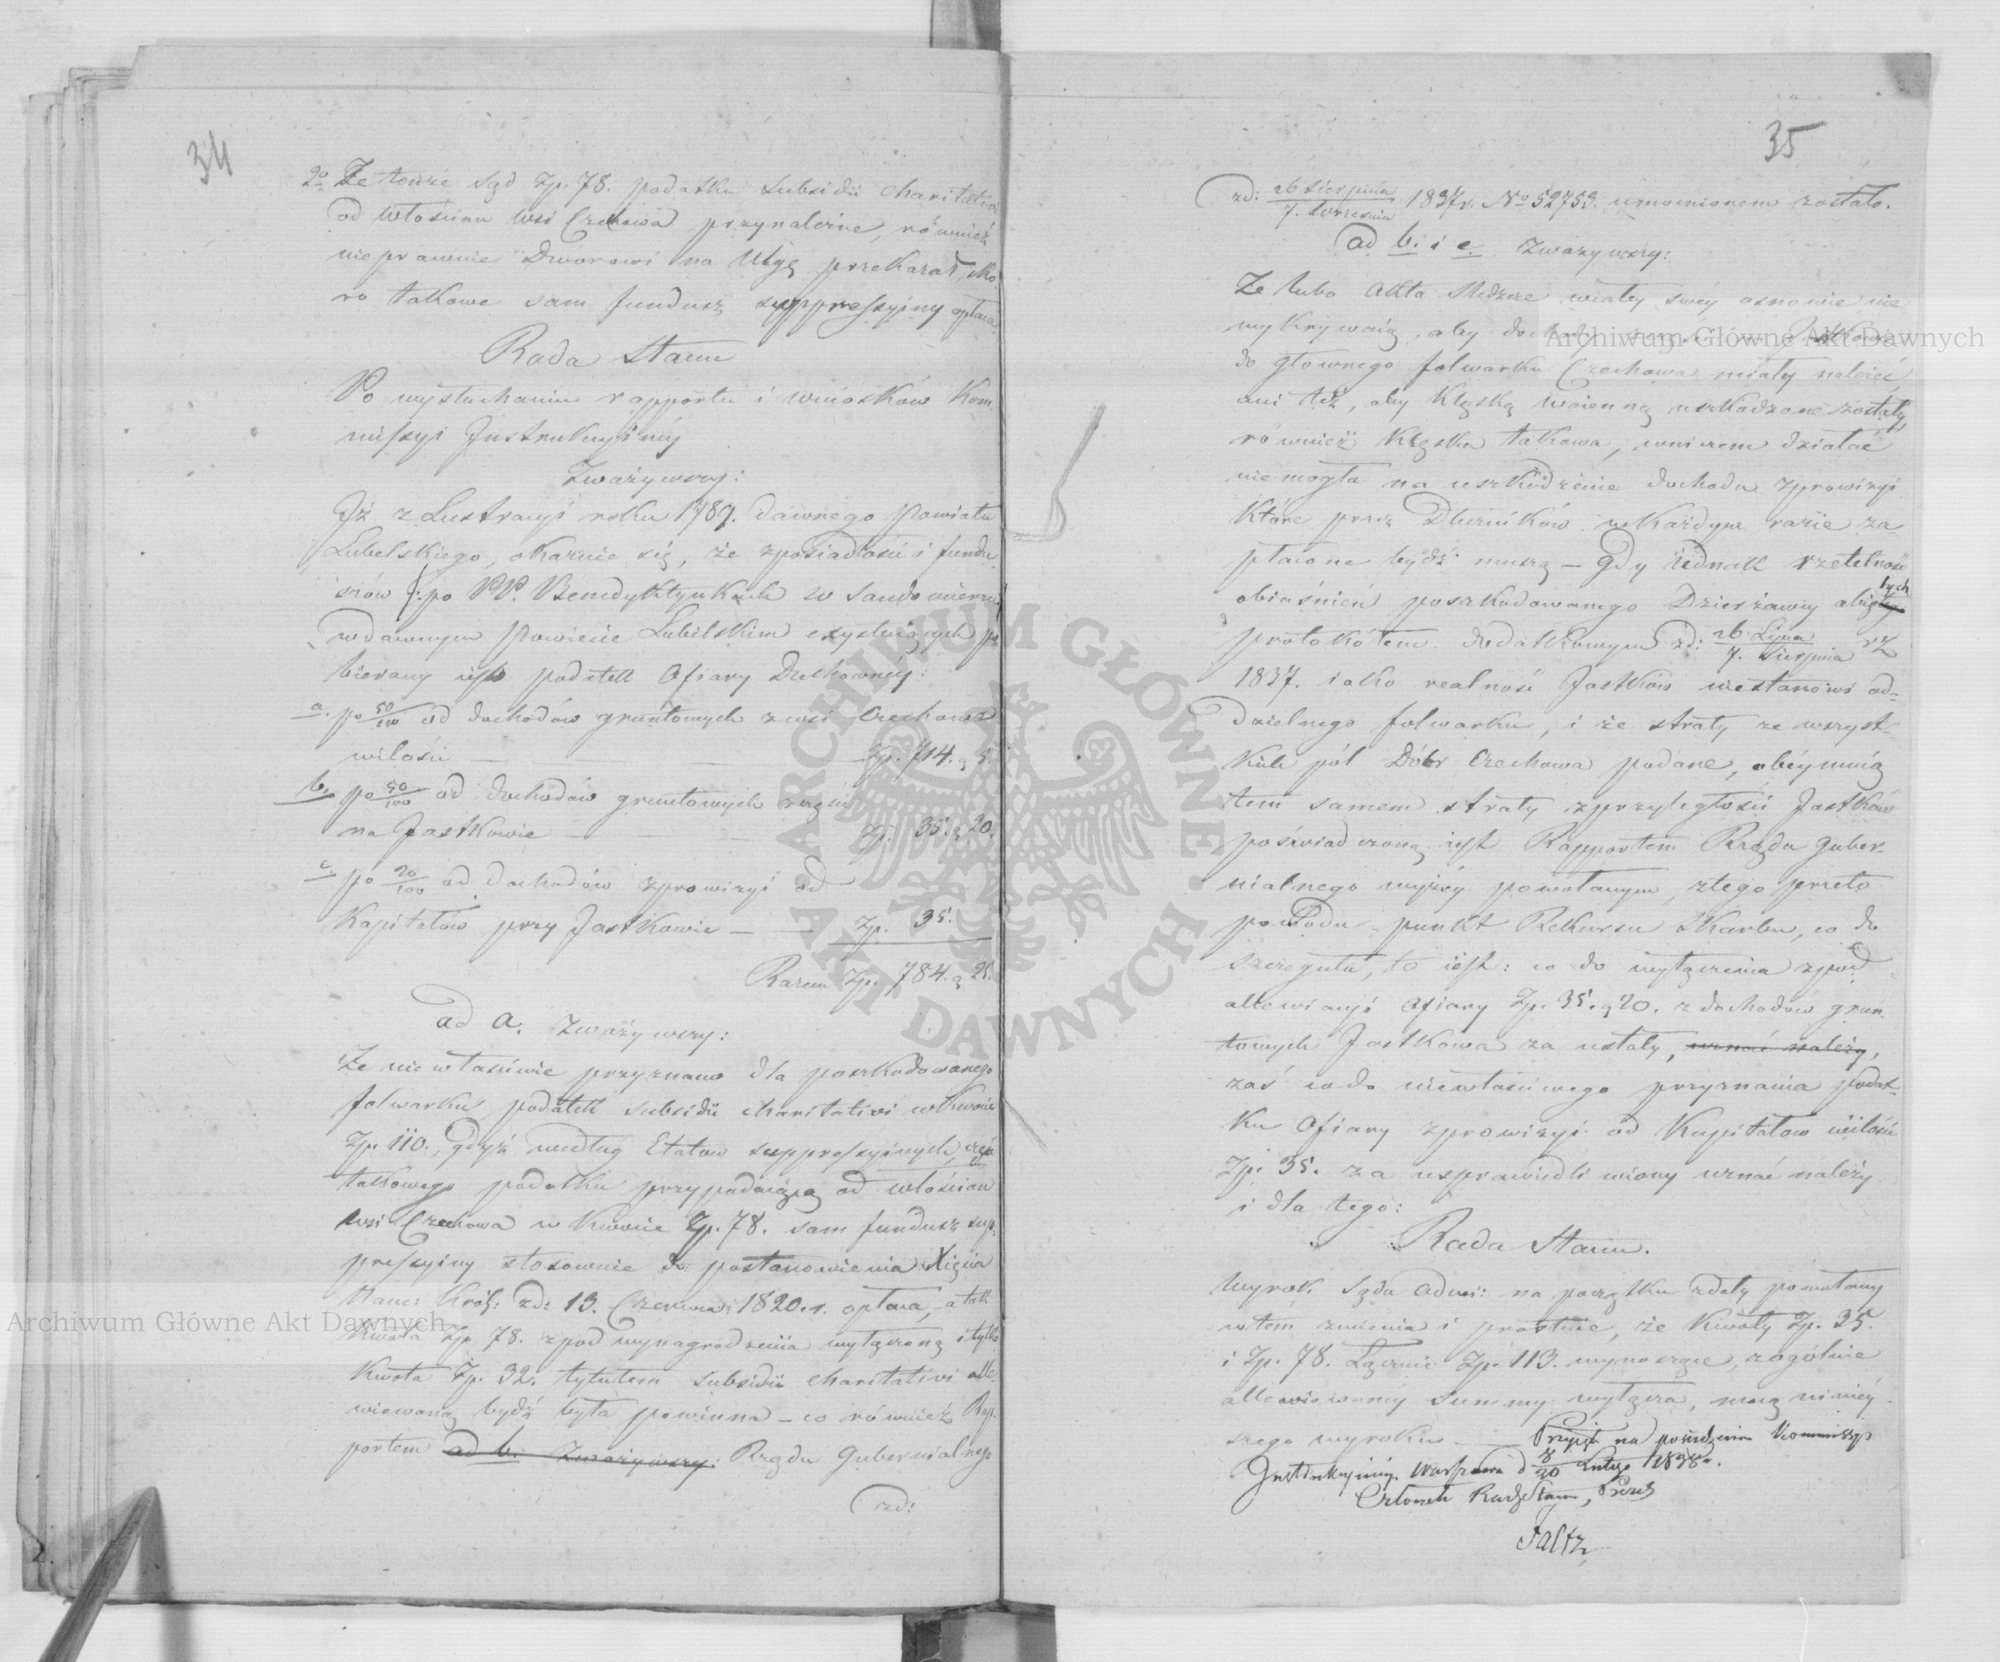 34
2o Że tenże Sąd Zp. 78. podatku Subsidii charitativi
od Włościan wsi Czechowa przynależne, również
nieprawnie Dworowi na Ulgę przekazał, sko
ro takowe sam fundusz suppressyiny opłaca.
Rada Stanu
Po wysłuchaniu rapportu i wniosków Kom
missyi Instrukcyjnéj
Zważywszy:
Iż z Lustracyi roku 1789. dawnego Powiatu
Lubelskiego, okazuie się, że z posiadłości i fundu
szów /: po PP. Benedyktynkach w Sandomierzu
w dawnym Powiecie Lubelskim exystuiących po
bierany iest podatek Ofiary Duchownéj:
a. po 50/100 od dochodów gruntowych z wsi Czechowa
w ilości — Zp. 714. g 5.
b. po 50/100 od dochodów gruntowych z części
na Jastkowie — Zp. 35. g 20.
c. po 20/100 od dochodów z prowizyi od
Kapitałów przy Jastkowie — — Zp. 35.
Razem Zp. 784. g 25.
ad a. Zważywszy:
Że niewłaściwie przyznano dla poszkodowanego
folwarku podatek subsidii charitativi w kwocie
Zp. 110. Gdyż według Etatów suppressyinych, część
takowego podatku przypadaiącą od włościan
wsi Czechowa w kwocie Zp. 78. sam fundusz sup-
pressyiny stosownie do postanowienia Xięcia
Nam: Król: zd: 13. Czerwca 1820. r. opłaca, a tak
Kwota Zp. 78. z pod wynagrodzenia wyłączoną i tylko
Kwota Zp. 32. tytułem subsidii charitativi alle
wiowaną bydź była powinna — co również Rap-
portem ad b. Zważywszy: Rządu Gubernialnego
zd:
35
zd: 26 Sierpnia / 7. Września 1837 r. No 52753. wznowionem zostało.
ad b. i c. Zważywszy:
Że lubo Akta Śledcze w całéj swéy osnowie nie
wykrywaią, aby dochody Jastkowa
do głownego folwarku Czechowa miały należeć
ani też, aby klęską woienną uszkodzone zostały
również klęska takowa, w niczem działać
nie mogła na uszkodzenie dochodu z prowizyi
które przez Dłużników w każdym razie za-
płacone bydź muszą — gdy iednak rzetelność
obiaśnień poszkodowanego Dzierżawcy obiętych
protokółem dodatkowym zd: 26 Lipca / 7. Sierpnia r z
1837. iako realność Jastków niestanowi od-
dzielnego folwarku, i że straty ze wszyst-
kich pól Dóbr Czechowa podane, obeymuią
tem samem straty z przyległości Jastków
poświadczoną iest Rapportem Rządu Guber-
nialnego wyżéy powołanym, z tego przeto
powodu punkt Rekursu Skarbu, co do
szczegułu, to iest: co do wyłączenia z pod
allewiacyi Ofiary Zp. 35. g 20. z dochodów grun-
towych Jastkowa za ustały, uznać należy,
zaś co do niewłaściwego przyznania podat-
ku Ofiary z prowizyi od Kapitałow w ilości
Zp. 35. za usprawiedliwiony uznać należy
i dla tego:
Rada Stanu.
Wyrok Sądu Admi: na początku zdaty powołany
w tém zmienia i prostuie, że Kwoty Zp. 35.
i Zp. 78. Łącznie Zp. 113. wynoszące, z ogólnie
allewiowanéy Summy wyłącza, mocą niniéy-
szego wyroku — Przyięto na posiedzeniu Kommissyi
Instrukcyinéy. Warszawa d 8/20 Lutego 1838 r.
Członek Rady Stanu, Prezes
Faltz
Archiwum Główne Akt Dawnych
Archiwum Główne Akt Dawnych
ARCHIWUM GŁÓWNE AKT DAWNYCH